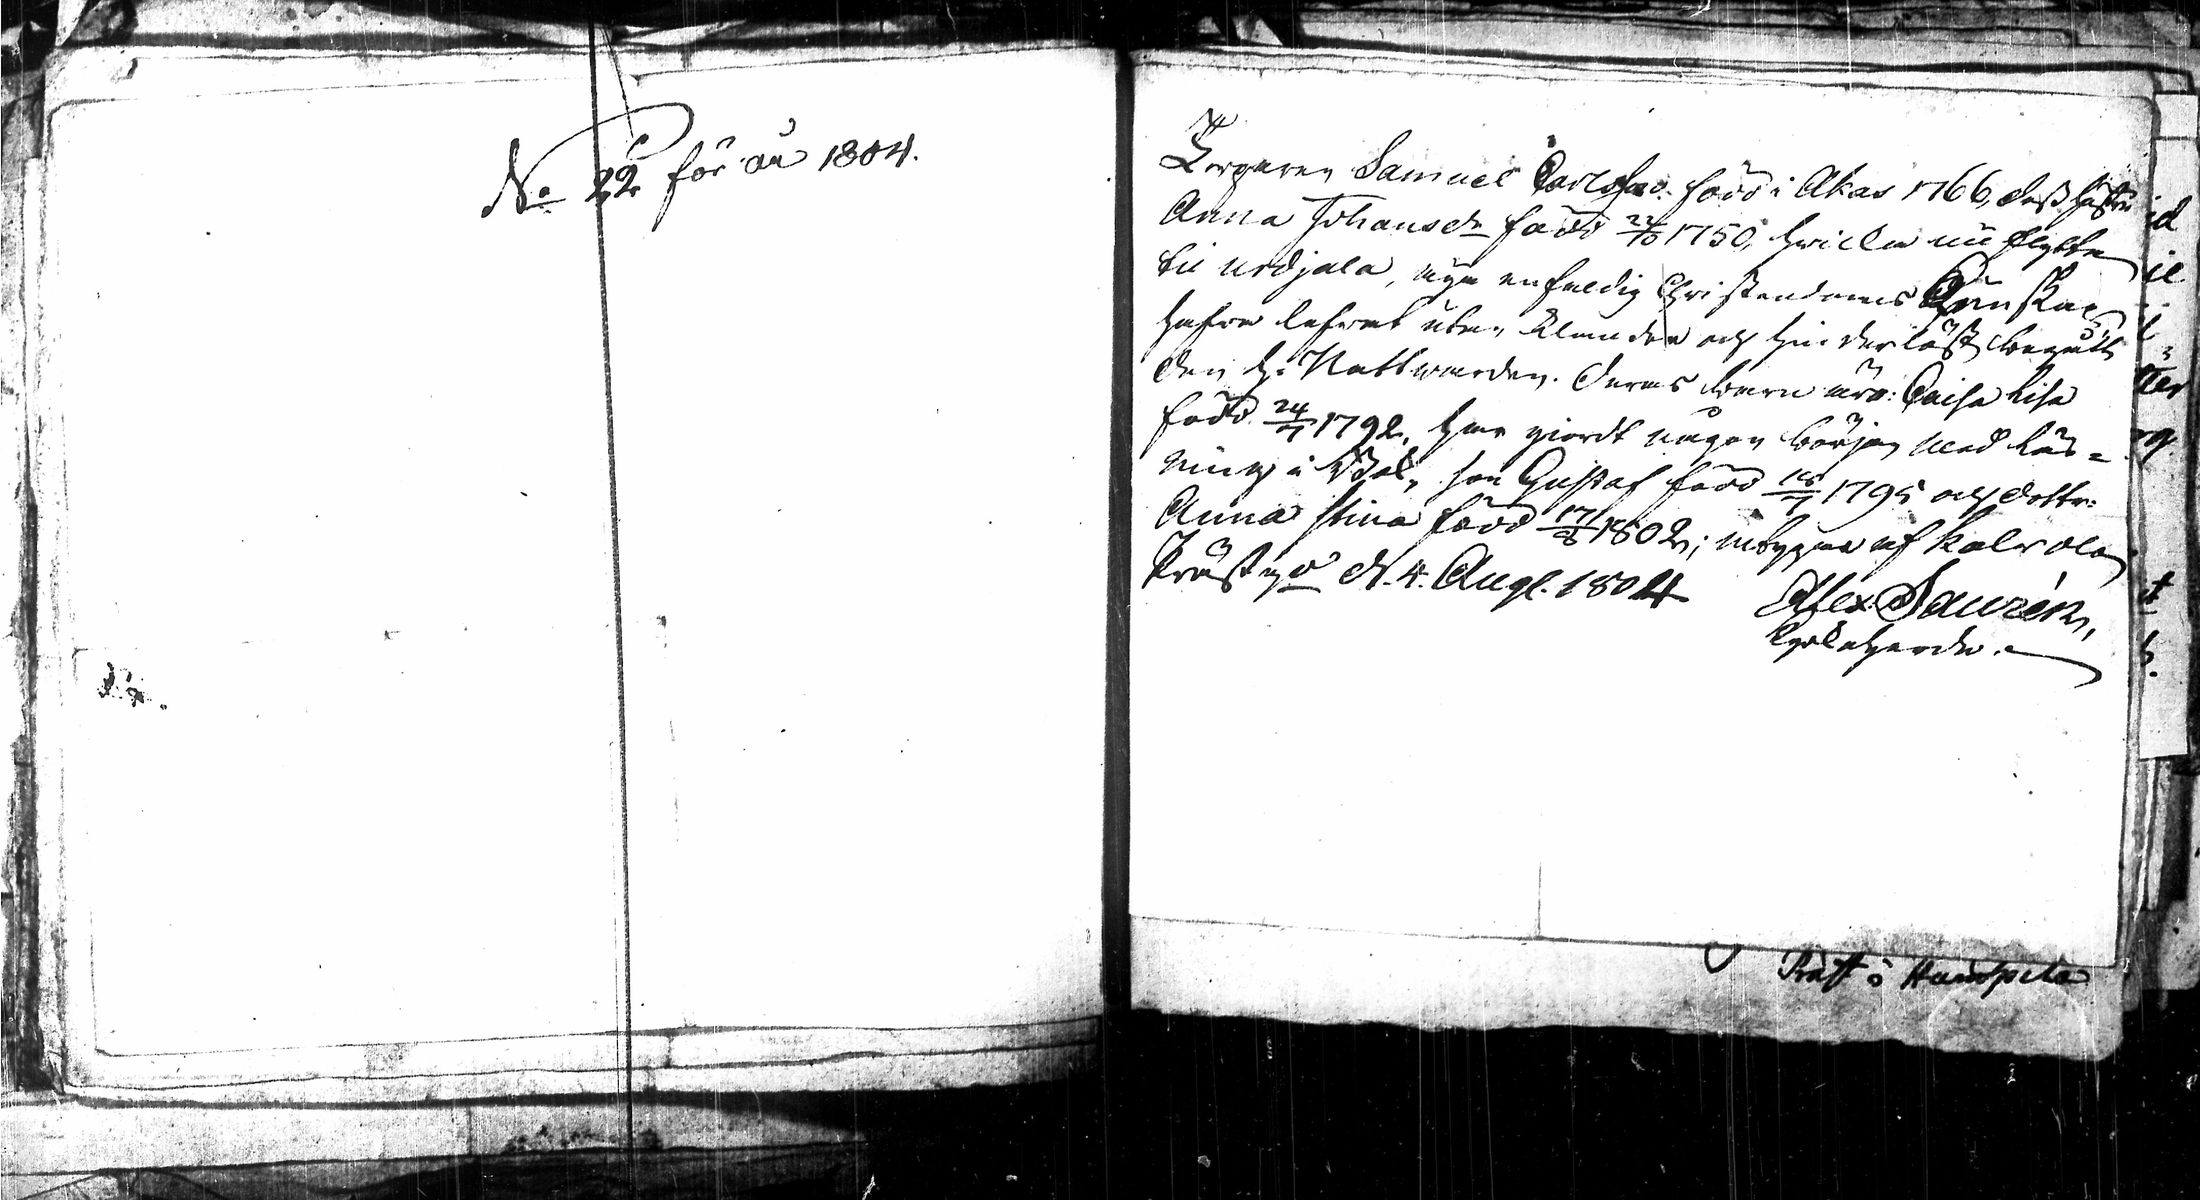 No 22 för år 1804.
Torparen Samuel Carlsson född i Akas 1766, dess hustru
Anna Johansdr född 22/10 1750, hwilka nu flytta
til Urdjala, äga enfaldig Christendoms Kunskap
hafva lefvat utan klander och hinderlöst begått
den H. Nattwarden. Deras barn äro: Caisa Lisa
född 24/7 1792, har giordt någon början med läs-
ning i Bok, son Gustaf född 1795 och dottr:
Anna Stina född 1802; intygas af Kalvola
Prästgd d. 4. Aug. 1804
Alex. Laurén,
Kyrkoherde.
Präst i